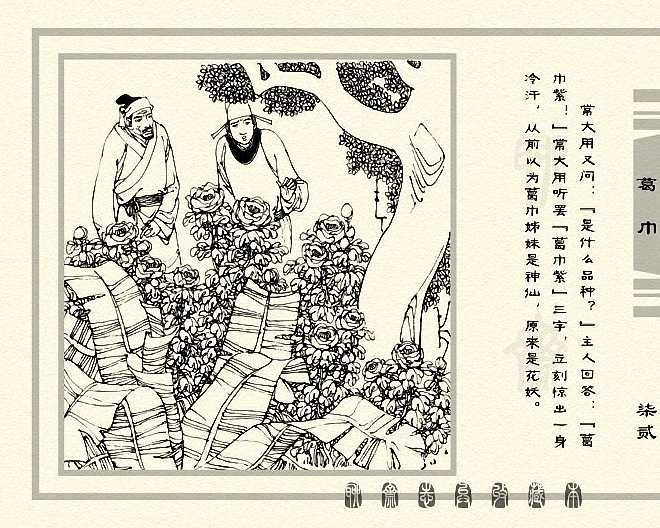 常大用又问：「是什么品种？」主人回答：「葛
巾紫！」常大用听罢「葛巾紫」三字，立刻惊出一身
冷汗，从前以为葛巾姊妹是神仙，原来是花妖。
葛巾
柒贰